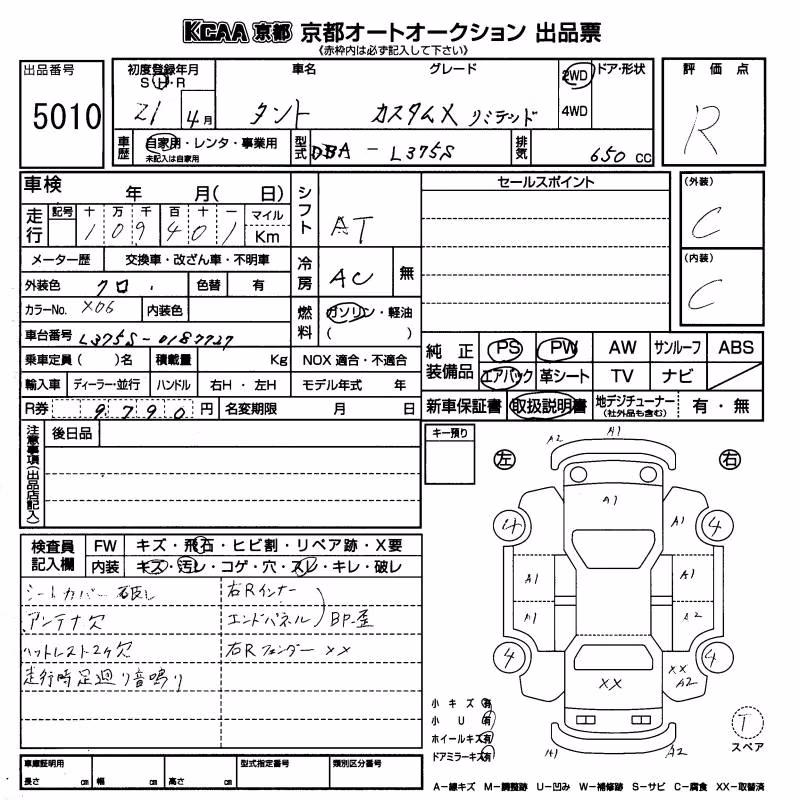 KCAA 京都 京都オートオークション 出品票
《赤枠内は必ず記入して下さい》
出品番号 5010
初度登録年月 S・H・R 21 4月
車名 タント
グレード カスタムX リミテッド
2WD 4WD ドア・形状
評価点 R
車歴 自家用・レンタ・事業用 未記入は自家用
型式 DBA - L375S
排気 650 cc
車検 年 月( 日)
シフト AT
セールスポイント
(外装) C
走行 記号 十 万 千 百 十 一 マイル Km
1 0 9 4 0 1
メーター歴 交換車・改ざん車・不明車
冷房 AC 無
(内装) C
外装色 クロ 色替 有
カラーNo. X06 内装色
燃料 ガソリン・軽油 ( )
車台番号 L375S-0187727
乗車定員( )名 積載量 Kg NOX 適合・不適合
輸入車 ディーラー・並行 ハンドル 右H・左H モデル年式 年
R券 9790円 名変期限 月 日
純正装備品 PS PW AW サンルーフ ABS
エアバック 革シート TV ナビ
新車保証書 取扱説明書 地デジチューナー (社外品も含む) 有・無
注意事項(出品店記入) 後日品
キー預り
左 右
A2 A1
A1
A1
4 4
A1 A1
A1 A2
4 4
XX
XX A2
A1 A2
検査員記入欄 FW キズ・飛石・ヒビ割・リペア跡・X要
内装 キズ・汚レ・コゲ・穴・スレ・キレ・破レ
シートカバー破レ 右Rインナー
アンテナ欠 エンドパネル BP-歪
ハットレスト2ケ欠 右Rフェンダー XX
走行時足廻り音鳴り
小キズ 有
小U 有
ホイールキズ 有
ドアミラーキズ 有
T
スペア
車庫証明用 長さ cm 幅 cm 高さ cm 型式指定番号 類別区分番号
A-線キズ M-調整跡 U-凹み W-補修跡 S-サビ C-腐食 XX-取替済